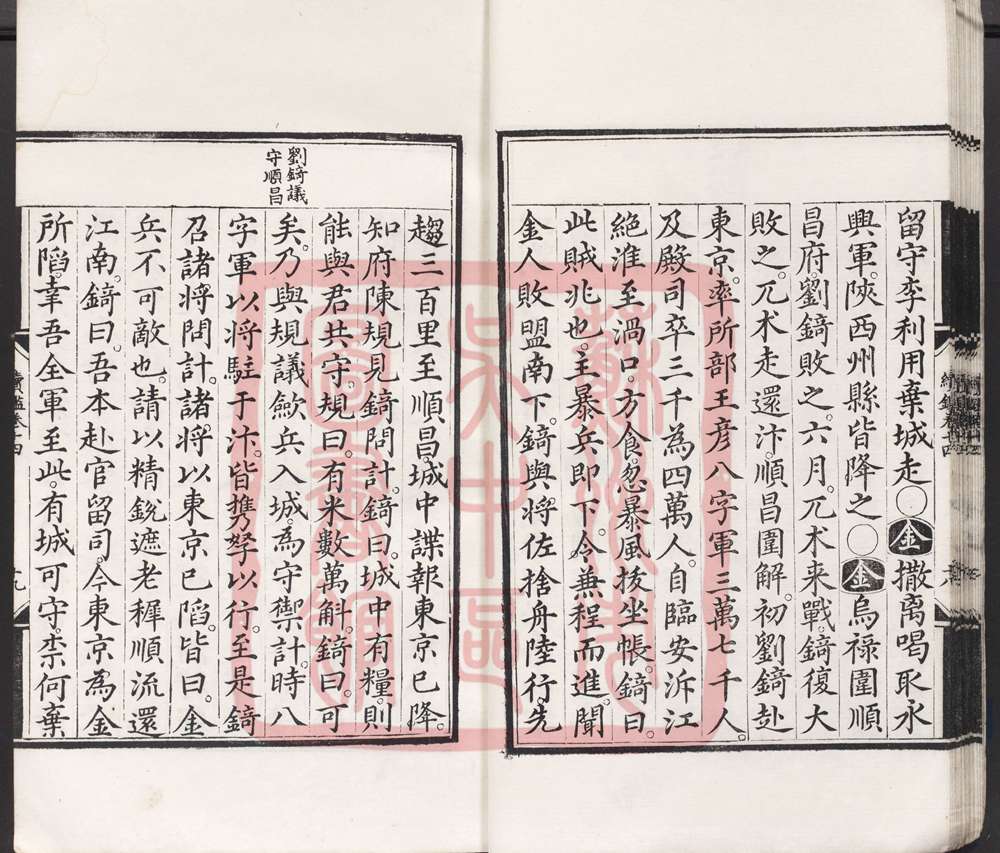 留守李利用棄城走○金撒离喝取永
興軍。陝西州縣皆降之○金烏祿圍順
昌府。劉錡敗之。六月。兀朮来戰。錡復大
敗之。兀朮走還汴。順昌圍解。初劉錡赴
東京。率所部王彦八字軍三萬七千人。
及殿司卒三千為四萬人。自臨安泝江
絶淮至渦口。方食。忽暴風拔坐帳。錡曰。
此賊兆也。主暴兵即下。令兼程而進。聞
金人敗盟南下。錡與將佐捨舟陸行。先
劉錡議
守順昌
趨三百里至順昌城中諜報東京已降。
知府陳規見錡問計。錡曰。城中有糧。則
能與君共守。規曰。有米數萬斛。錡曰。可
矣。乃與規議歛兵入城。為守禦計。時八
字軍以將駐于汴。皆攜孥以行。至是錡
召諸將問計。諸將以東京已陷。皆曰。金
兵不可敵也。請以精銳遮老稺順流還
江南。錡曰。吾本赴官留司。今東京為金
所陷。幸吾全軍至此。有城可守。柰何棄